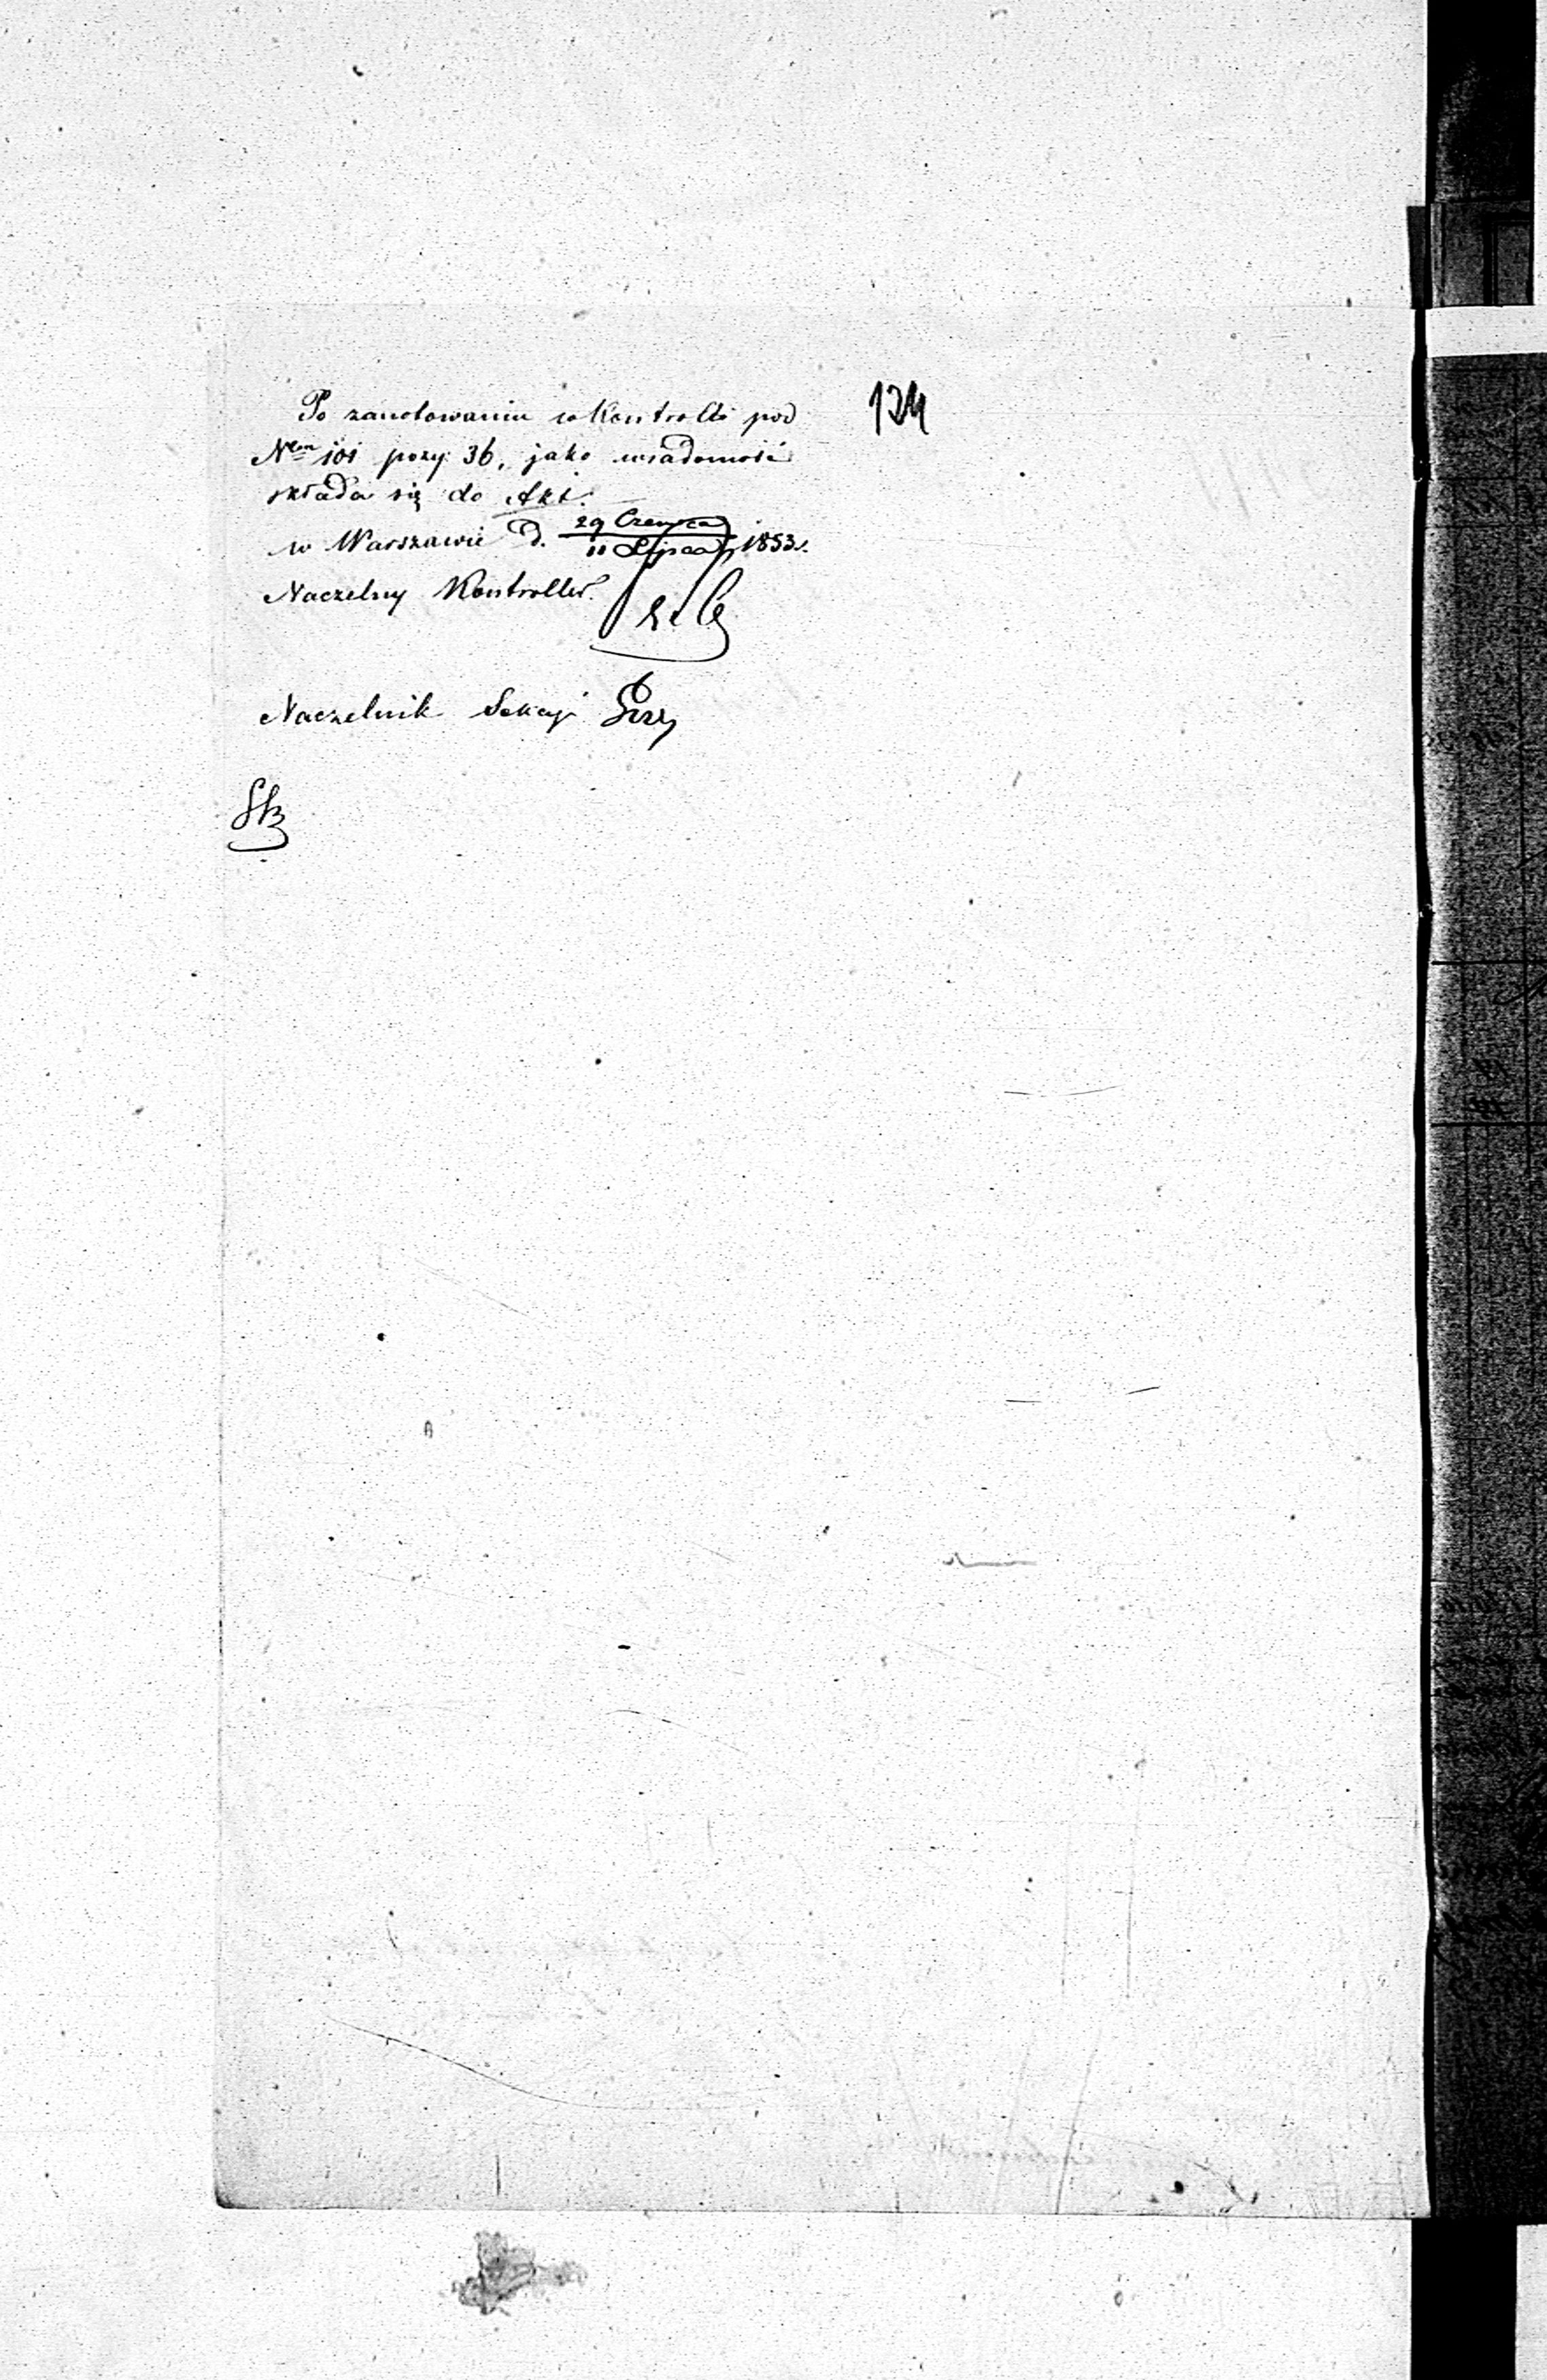 124
Po zanotowaniu w Kontrolli pod
Nem 101 pozy: 36, jako wiadomość
składa się do Akt.
w Warszawie D. 29 Czerwca / 11 Lipca 1853 r.
Naczelny Kontroller
Naczelnik Sekcyi